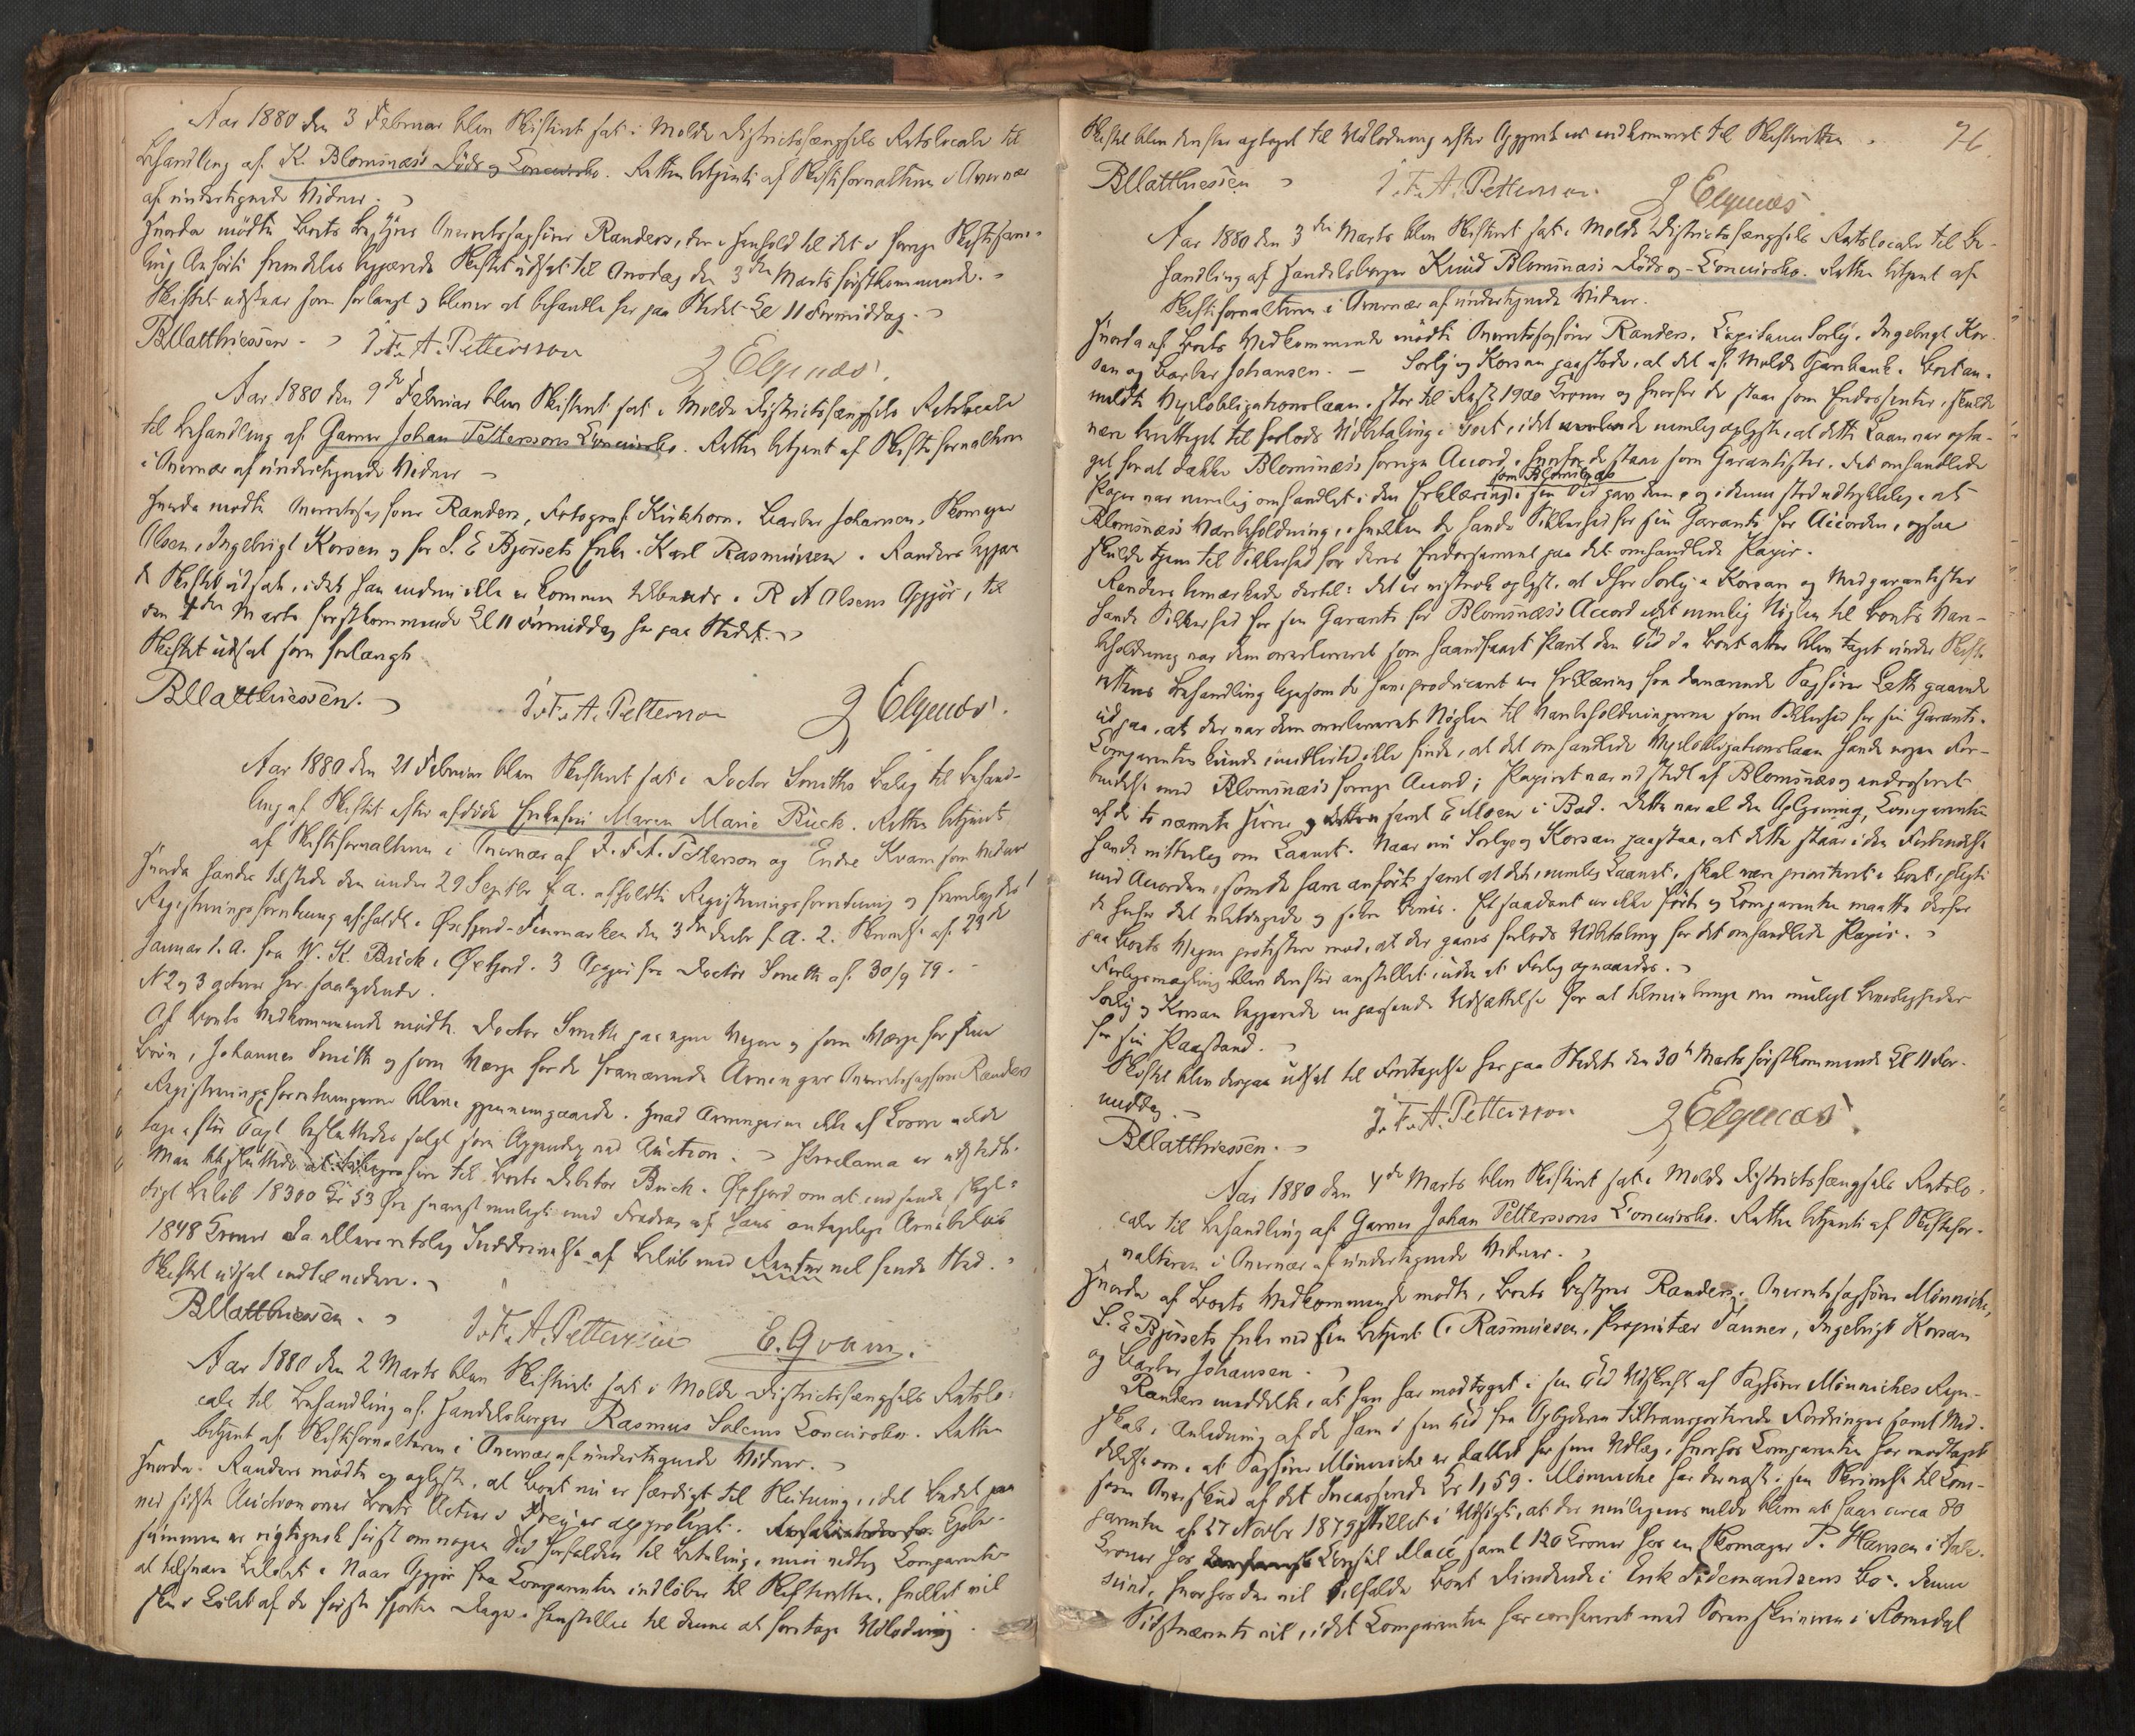 Aar 1880 den 3 Februar blev Skifteret sat i Molde Districtsfængsels Retslocale til
Behandling af K. Blomsnæs's Døds og Concursbo. Retten betjent af Skifteforvalteren i Overvær
af undertegnede Vidner.
Hvorda mødte Boets Bestyrer Overretssagfører Randers, der i Henhold til det i forrige Skiftesam-
ling Anførte fremdeles begjærede Skiftet udsat til Onsdag den 3die Marts førstkommende.
Skiftet udsattes som forlangt og bliver at behandle her paa Stedet Kl 11 Formiddag.
BMatthiessen. J. F. A. Pettersson J Elgenæs.
Aar 1880 den 9de Februar blev Skifteret sat i Molde Districtsfængsels Retslocale
til Behandling af Garver Johan Petterssons Concursbo. Retten betjent af Skifteforvalteren
i Overvær af undertegnede Vidner
Hvorda mødte Overretssagfører Randers, Fotograf Kirkhorn, Barber Johansen, Skomager
Olsen, Ingebrigt Korsen og for S. E Bjørsets Enke Karl Rasmussen. Randers begjære-
de Skiftet udsat, idet han endnu ikke er kommen tilbunds i R A Olsens Opgjør, til
den 4de Marts førstkommende Kl 11 Formiddag her paa Stedet.
Skiftet udsat som forlangt
BMatthiessen. J. F. A. Pettersson J Elgenæs.
Aar 1880 den 21 Februar blev Skifteret sat i Doctor Smiths Bolig til Behand-
ling af Skiftet efter afdøde Enkefru Maren Marie Buck. Retten betjent
af Skifteforvalteren i Overvær af J. F. A. Petterson og Endre Kvam som Vidner
Hvorda havdes tilstede den under 29 Septbr f. a. afholdte Registreringsforretning og fremlagdes 1
Registreringsforretning afholdt i Øxfjord-Finmarken den 3die Decbr f. a. 2. Skrivelse af 29de
Januar l. a. fra W. K. Buck i Øxfjord. 3 Opgjør fra Doctor Smith af 30/9 79.
N 2 og 3 acteres her saalydende.
Af Boets Vedkommende mødte Doctor Smith paa egne Vegne og som Værge for sine
Børn, Johannes Smith og som Værge for de fraværende Arvinger Overretssagfører Randers
Registreringsforretningerne bleve gjennemgaaede. Hvad Arvingerne ikke af Løsøre vilde
tage efter Taxt besluttedes solgt som Opgivelse ved Auction. Proclama er udstedt.
Man besluttede at tilskrive til Boets Debitor Buck i Øxfjord om at indsende skyl-
digt Beløb 18300 Kr 53 Øre snarest muligt med Fradrag af hans antagelige Arvebeløb
1848 Kroner da ellers retslig Inddrivelse af Beløb med Renter vil finde Sted.
Skiftet udsat indtil videre.
BMatthiessen. J. F. A. Pettersson E. Qvam.
Aar 1880 den 2 Marts blev Skifteret sat i Molde Districtsfængsels Retslo-
cale til Behandling af Handelsborger Rasmus Solems Concursbo. Retten
betjent af Skifteforvalteren i Overvær af undertegnede Vidner.
Hvorda Randers mødte og oplyste, at Boet nu er færdigt til Slutning, idet Budet paa
ved sidste Auction over Boets Activa i Frei er approberet. Kjøbe-
summen er rigtignok først om nogen Tid forfalden til Betaling, men vedtog Comparenten
at tilsvare Beløbet. Naar Opgjør fra Comparenten indløber til Skifteretten, hvilket vil
ske i Løbet af de første fjorten Dage, henstilles til denne at foretage Udlodning.
76.
Skiftet blev derefter optaget til Udlodning efter Opgjøret er indkommet til Skifteretten.
BMatthiessen J. F. A. Pettersson J Elgenæs.
Aar 1880 den 3die Marts blev Skifteret sat i Molde Districtsfængsels Retslocale til Be-
handling af Handelsborger Knud Blomsnæs's Døds og Concursbo. Retten betjent af
Skifteforvalteren i Overvær af undertegnede Vidner.
Hvorda af Boets Vedkommende mødte Overretssagfører Randers, Capitain Sørby, Ingebrigt Kor-
san og Barber Johansen. — Sørby og Korsan paastode, at det af Molde Sparebank i Boet an-
meldte Vexelobligationslaan, stor til Rest 1900 Kroner og hvorfor de staar som Endossenter, skulde
være berettiget til forlods Udbetaling i Boet, idet de nemlig oplyste, at dette Laan var opta-
get for at dække Blomsnæs's forrige Accord, hvorfor de staar som Garantister. Det omhandlede
Papir var nemlig omhandlet i den Erklæring, som Blomsnæs i sin Tid gav dem, og i denne stod udtrykkelig, at
Blomsnæs's Varebeholdning, i hvilken de havde Sikkerhed for sin Garanti for Accorden, ogsaa
skulde tjene til Sikkerhed for deres Endossement paa det omhandlede Papir.
Randers bemærkede dertil: det er vistnok oplyst, at Dhrr Sørby & Korsan og Medgarantister
havde Sikkerhed for sin Garanti for Blomsnæs's Accord idet nemlig Nøglen til Boets Vare-
beholdning var dem overleveret som haandfaaet Pant den Tid da Boet atter blev taget under Skifte-
rettens Behandling ligesom de have produceret en Erklæring fra daværende Sagfører Leth gaaende
ud paa, at der var dem overleveret Nøglen til Varebeholdningerne som Sikkerhed for sin Garanti.
Comparenten kunde imidlertid ikke finde, at det omhandlede Vexelobligationslaan havde nogen For-
bindelse med Blomsnæs's forrige Accord; Papiret var udstedt af Blomsnæs og endosseret
af de to nævnte Herrer samt E Moen i Bod. Dette var al den Oplysning, Comparenten
havde nitterlig om Laanet. Naar nu Sørby og Korsan paastaa, at dette staar i den Forbindelse
med Accorden, som de have anført samt at det, nemlig Laanet, skal være prioriteret i Boet, pligte
de herfor det nødvendige og fulde Bevis. Et saadant er ikke ført og Comparenten maatte derfor
paa Boets Vegne protestere mod, at der gaves forlods Udbetaling for det omhandlede Papir.
Forligsmægling blev derefter anstillet uden at Forlig opnaaedes.
Sørby og Korsan begjærede en passende Udsættelse for at tilveiebringe om muligt Bevisligheder
for sin Paastand.
Skiftet blev derpaa udsat til Foretagelse her paa Stedet den 30te Marts førstkommende Kl 11 For-
middag.
BMatthiessen. J. F. A. Pettersson J Elgenæs
Aar 1880 den 4de Marts blev Skifteret sat i Molde Districtsfængsels Retslo-
cale til Behandling af Garver Johan Petterssons Concursbo. Retten betjent af Skiftefor-
valteren i Overvær af undertegnede Vidner.
Hvorda af Boets Vedkommende mødte, Boets Bestyrer Randers, Overretssagfører Mønniche,
S. E Bjørsets Enke ved sin Betjent C. Rasmussen, Proprietær Tanner, Ingebrigt Korsan
og Barber Johansen.
Randers meddelte, at han har modtaget i sin Tid Udskrift af Sagfører Mønniches Regn-
skab i Anledning af de ham i sin Tid fra Opbyderen tiltransporterede Fordringer samt Med-
delelse om, at Sagfører Mønniche er dækket for sine Udlæg, hvorfor Comparenten har modtaget
som Overskud af det Incasserede Kr 1,59. Mønniche har dernæst i sin Skrivelse til Com-
parenten af 27 Novbr 1879 stillet i Udsigt, at der muligens vilde blive at faae circa 80
Kroner hos Consul Macé samt 120 Kroner hos en Skomager P. Hansen i Aale-
sund, hvorhos der vil tilfalde Boet Dividende i Erik Tidemandsens Bo. Denne
Sidstnævnte vil, idet Comparenten har confereret med Sorenskriveren i Romsdal